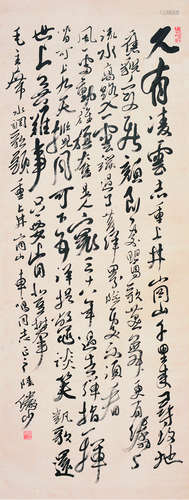 久有凌雲志重上井岡山千里來尋故地
舊貌變新顏到處鶯歌燕舞更有潺潺
流水高路入雲端過了黃洋界險處不須看
風雷動旌旗奮是人寰三十八年過去彈指一揮
間可上九天攬月可下五洋捉鱉談笑凱歌還
世上無難事只要肯登攀
毛主席水調歌頭重上井岡山 同志正之 陸